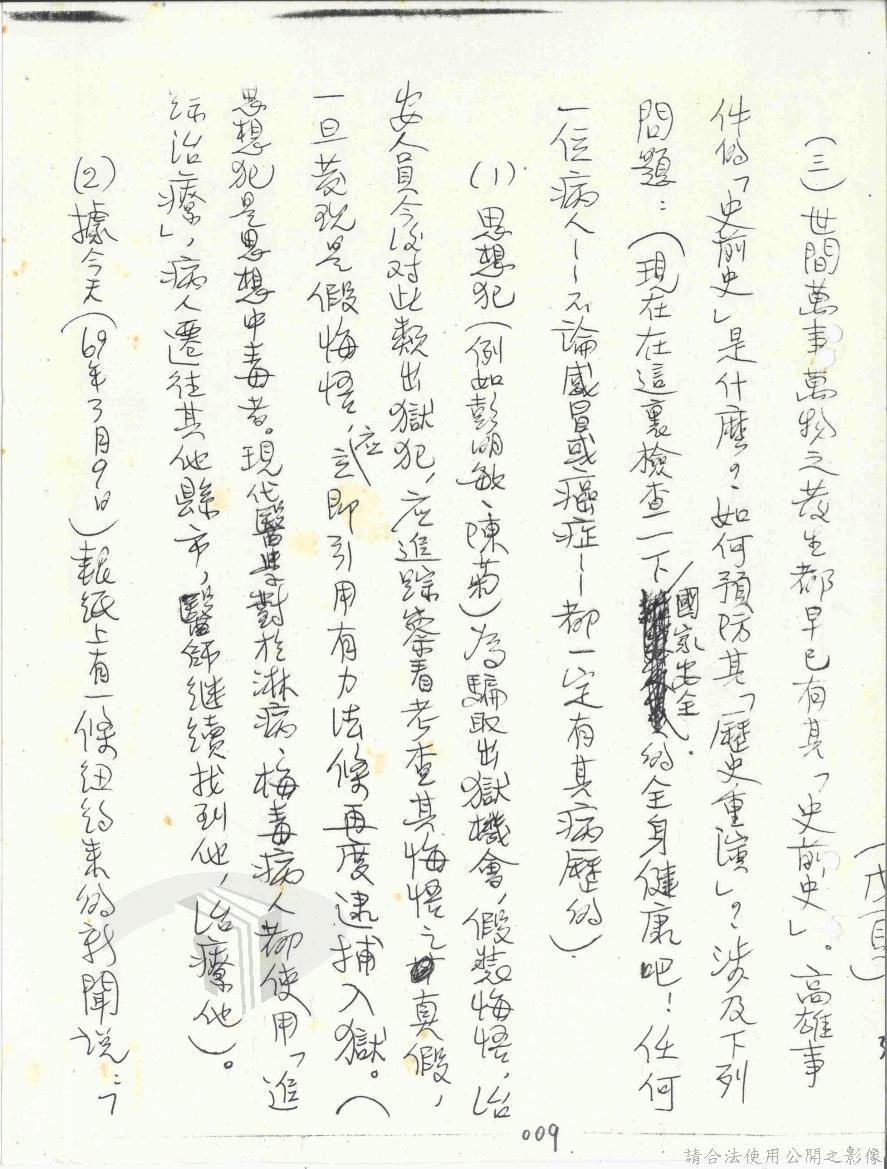 (戊頁)
(三)世間萬事萬物之發生都早已有其「史前史」。高雄事
件的「史前史」是什麼?如何預防其「歷史重演」?涉及下列
問題:(現在在這裏檢查一下國家安全的全身健康吧!任何
一位病人——不論感冒或癌症——都一定有其病歷的)。
(1)思想犯(例如彭明敏、陳菊)為騙取出獄機會,假裝悔悟,治
安人員今後对此類出獄犯,应追踪察看考查其悔悟之真假,
一旦發現是假悔悟,应立即引用有力法條再度逮捕入獄。(
思想犯是思想中毒者。現代醫學對於淋病、梅毒病人都使用「追
踪治療」,病人遷往其他縣市,醫師继續找到他,治療他)。
(2)據今天(69年3月9日)報紙上有一條纽约来的新聞说:「
009
請合法使用公開之影像